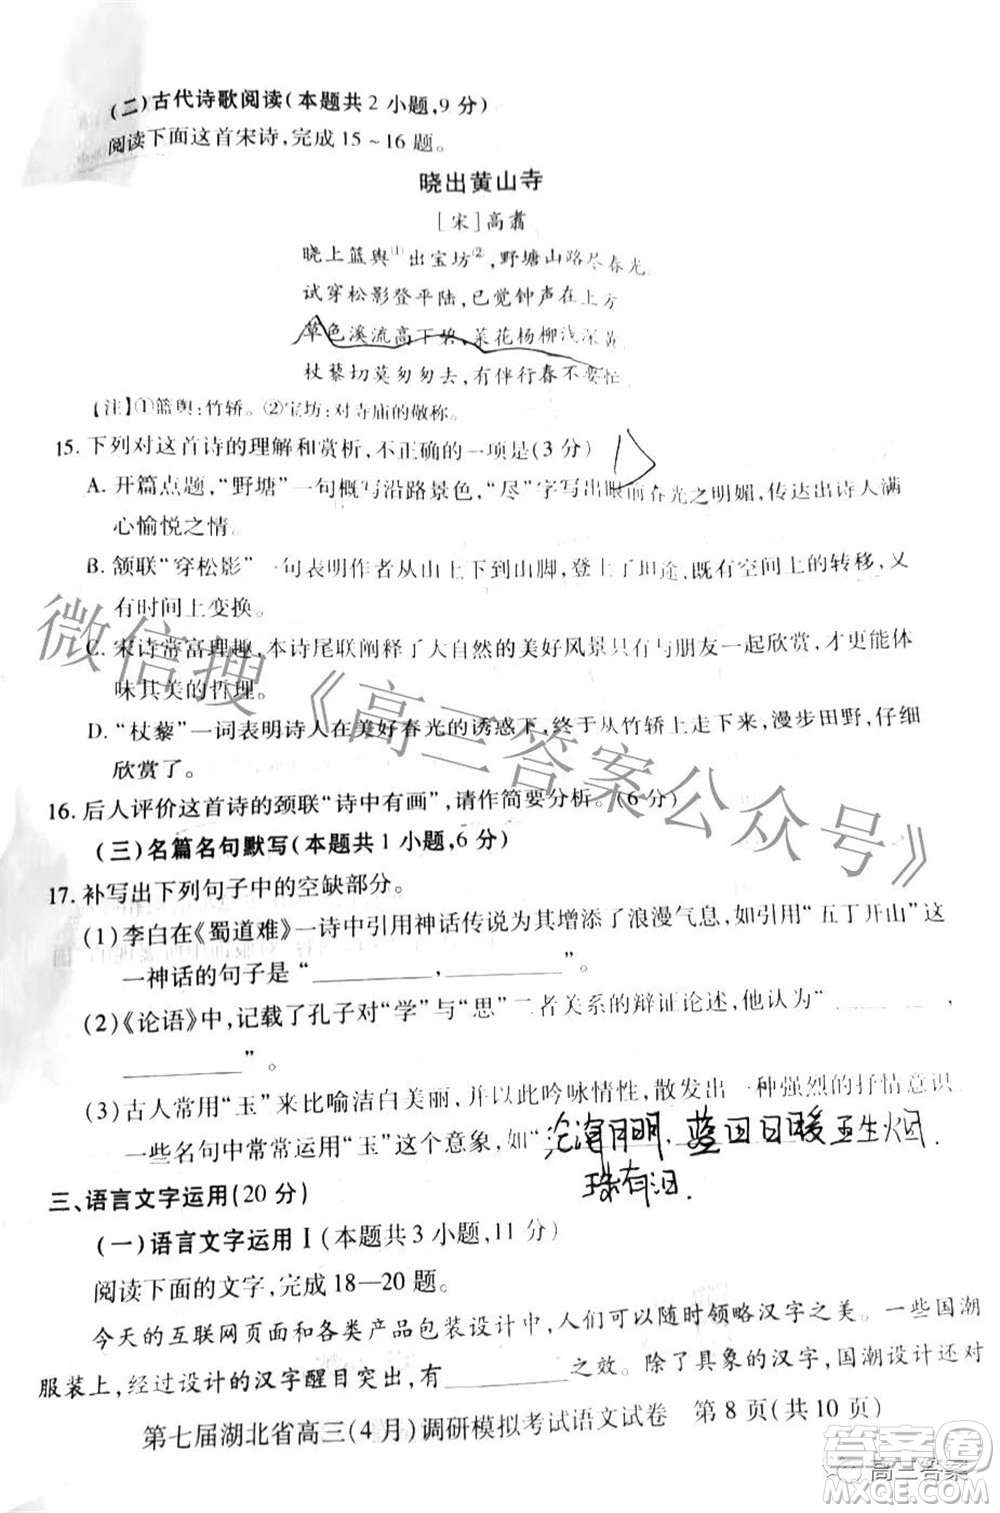 (二)古代诗歌阅读(本题共2小题,9分)
阅读下面这首宋诗,完成15~16题。
晓出黄山寺
[宋]高翥
晓上篮舆①出宝坊②,野塘山路尽春光。
试穿松影登平陆,已觉钟声在上方
草色溪流高下碧,菜花杨柳浅深黄
杖藜切莫匆匆去,有伴行春不要忙
【注】①篮舆:竹轿。②宝坊:对寺庙的敬称。
15.下列对这首诗的理解和赏析,不正确的一项是(3分)
A. 开篇点题,“野塘”一句概写沿路景色,“尽”字写出眼前春光之明媚,传达出诗人满
心愉悦之情。
B. 颔联“穿松影”一句表明作者从山上下到山脚,登上了坦途,既有空间上的转移,又
有时间上变换。
C. 宋诗常富理趣,本诗尾联阐释了大自然的美好风景只有与朋友一起欣赏,才能体
味其美的哲理。
D. “杖藜”一词表明诗人在美好春光的诱惑下,终于从竹轿上走下来,漫步田野,仔细
欣赏了。
16.后人评价这首诗的颈联“诗中有画”,请作简要分析。(6分)
(三)名篇名句默写(本题共1小题,6分)
17.补写出下列句子中的空缺部分。
(1)李白在《蜀道难》一诗中引用神话传说为其增添了浪漫气息,如引用“五丁开山”这
一神话的句子是“________,________”。
(2)《论语》中,记载了孔子对“学”与“思”二者关系的辩证论述,他认为“________,
________”。
(3)古人常用“玉”来比喻洁白美丽,并以此吟咏情性,散发出一种强烈的抒情意识
一些名句中常常运用“玉”这个意象,如“沧海月明 蓝田日暖玉生烟
珠有泪
三、语言文字运用(20分)
(一)语言文字运用Ⅰ(本题共3小题,11分)
阅读下面的文字,完成18—20题。
今天的互联网页面和各类产品包装设计中,人们可以随时领略汉字之美。一些国潮
服装上,经过设计的汉字醒目突出,有________之效。除了具象的汉字,国潮设计还对
第七届湖北省高三(4月)调研模拟考试语文试卷 第8页(共10页)
微信搜《高三答案公众号》
答案圈
高三答案
MXQE.COM